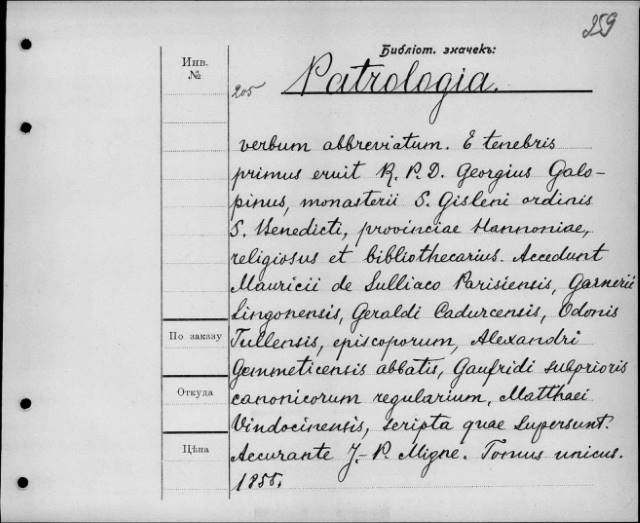 359
Библіот. значекъ:
Инв.
№
205
Patrologia.
verbum abbreviatum. E tenebris
primus eruit R. P. D. Georgius Galo-
pinus, monasterii S. Gisleni ordinis
S. Benedicti, provinciae Hannoniae,
religiosus et bibliothecarius. Accedunt
Mauricii de Sulliaco Parisiensis, Garnerii
Lingonensis, Geraldi Cadurcensis, Odonis
По заказу
Tullensis, episcoporum, Alexandri
Gemmeticensis abbatis, Gaufridi subprioris
Откуда
canonicorum regularium, Matthaei
Vindocinensis, scripta quae supersunt.
Цѣна
Accurante J.-P. Migne. Tomus unicus.
1855.